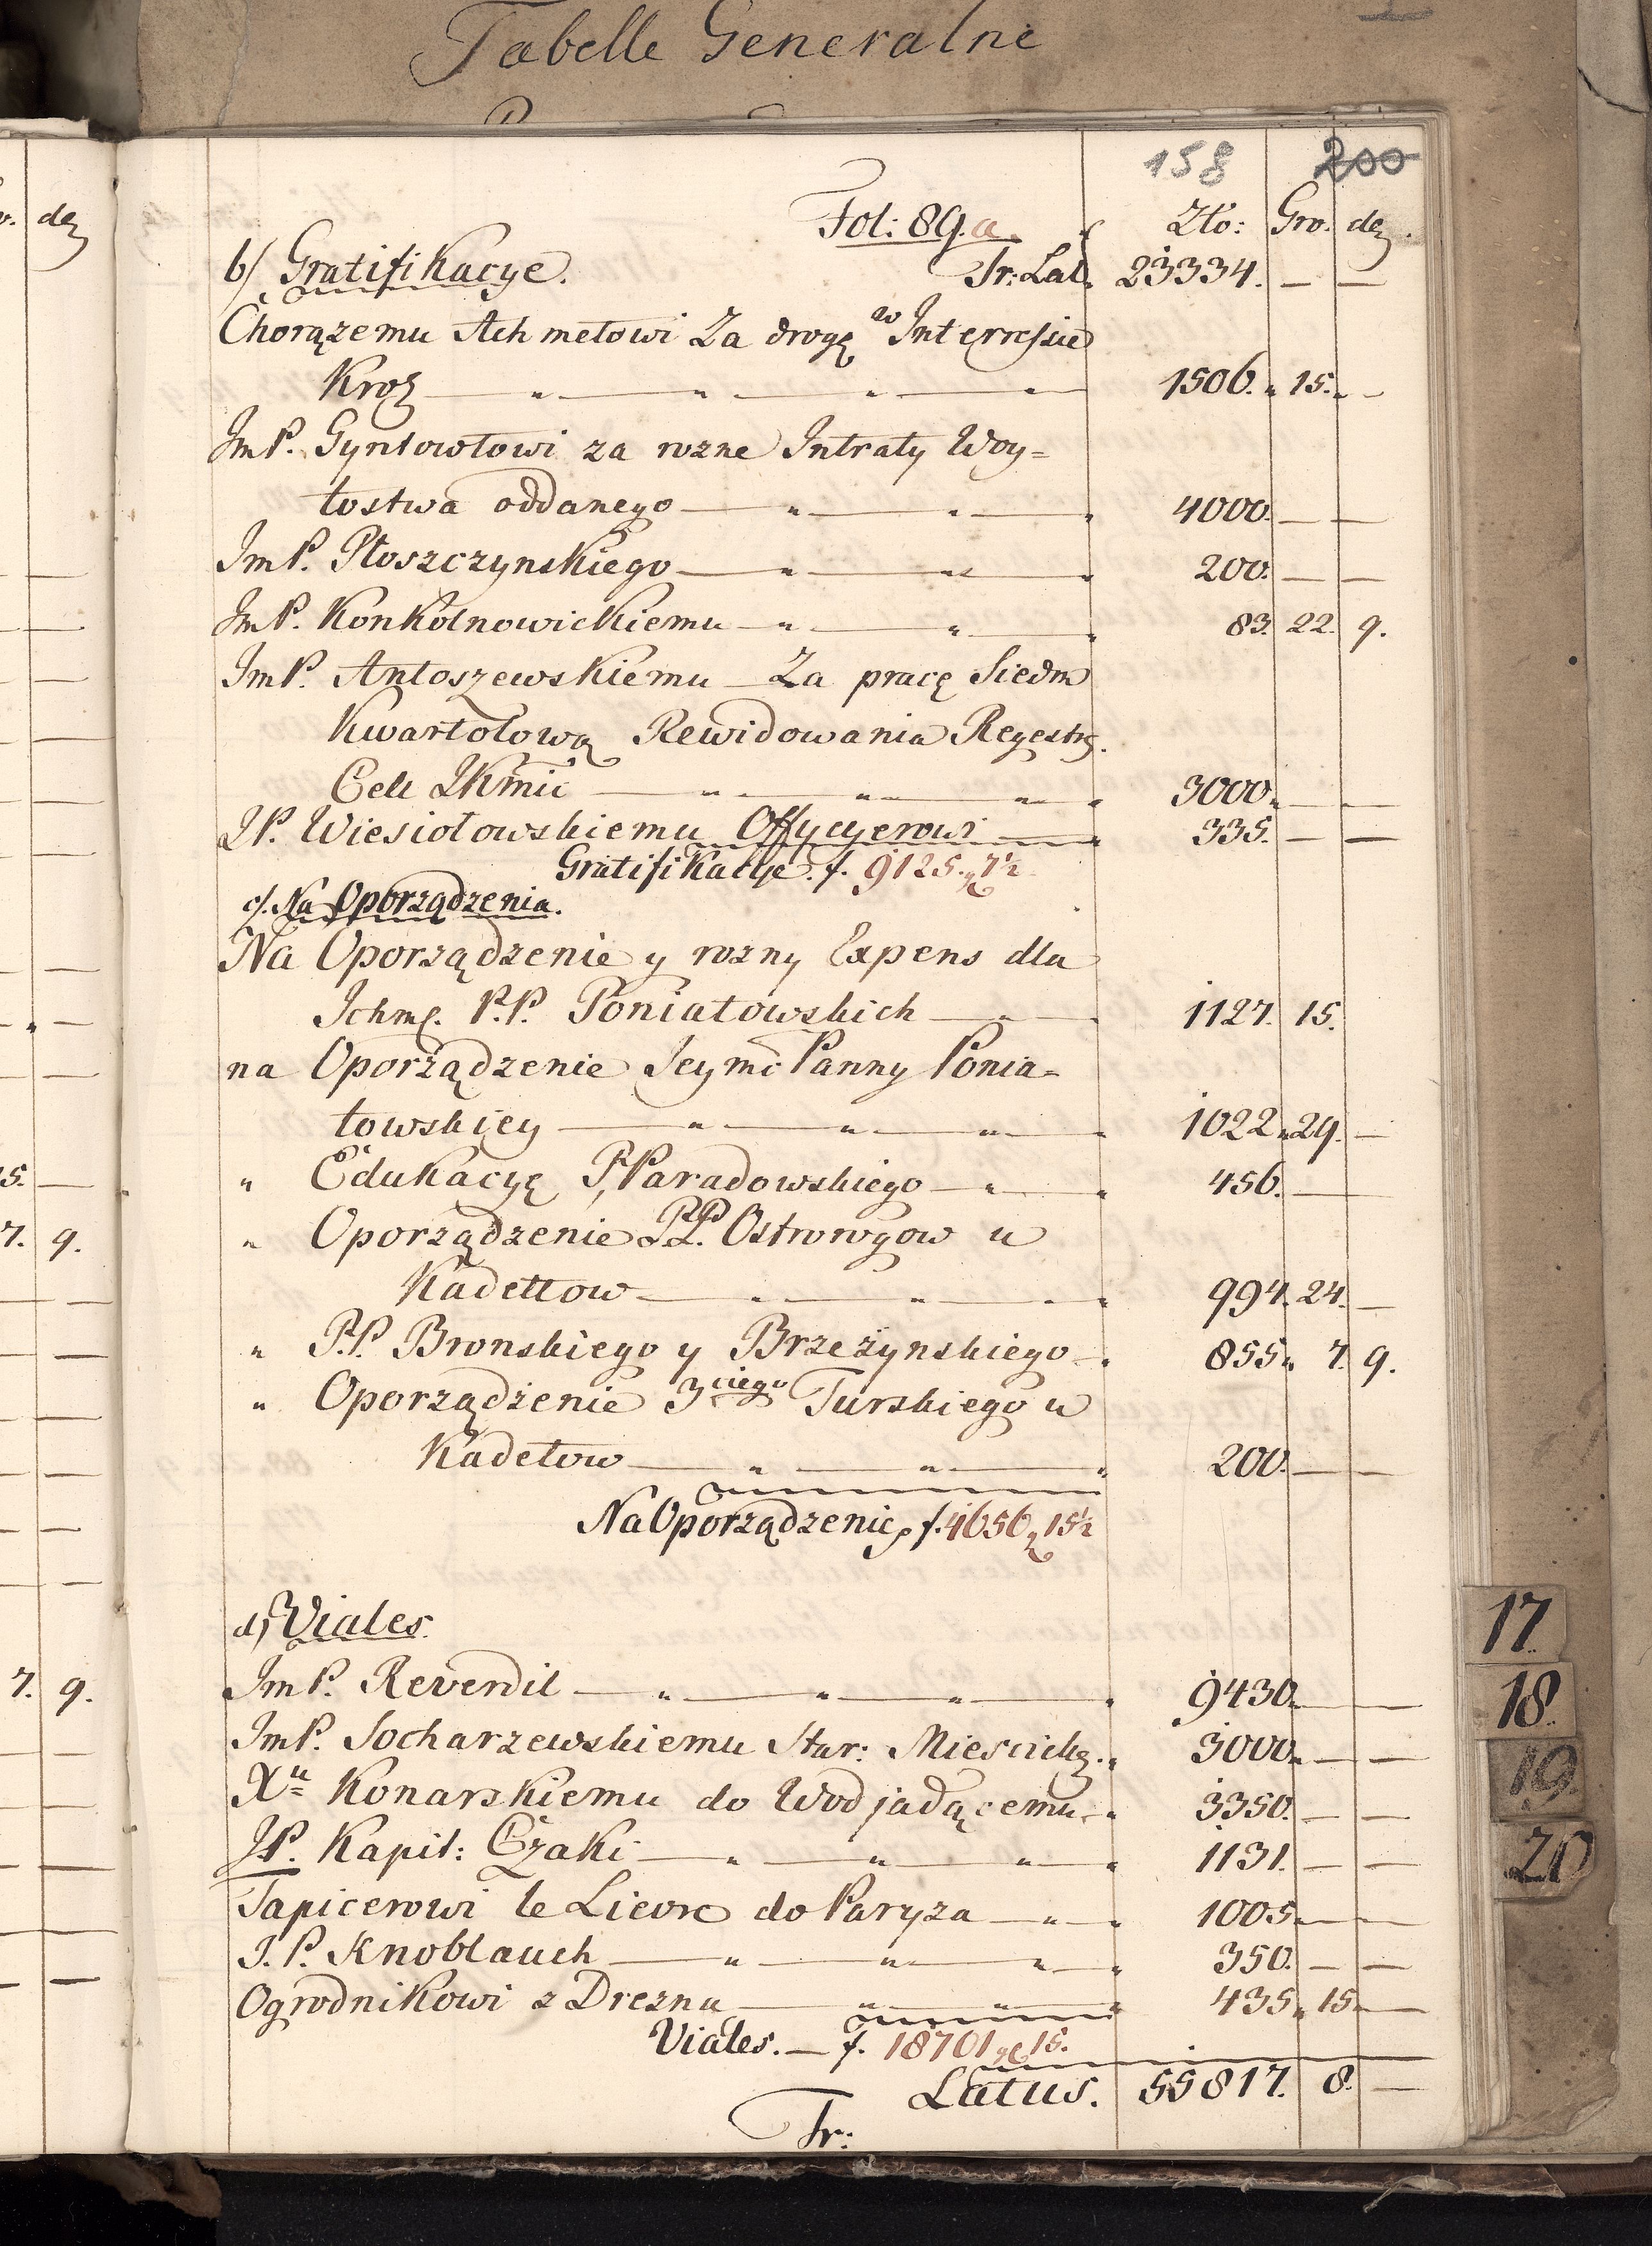 Tabelle Generalne
158 200
Fol: 89.a. Zło: Gro. dez.
b/ Gratifikacye. Tr: Lat. 23334. — —
Chorążemu Achmetowi Za drogę w Interressie
Kroz — " — " — " — " — 1506. " 15. " —
ImP. Gyntowtowi za rozne Intraty Woy=
tostwa oddanego — " — " — " 4000. — —
ImP. Płoszczynskiego — " — " — " 200. — —
ImP. Konkolnowickiemu — " — " — " 83. 22. 9.
ImP. Antoszewskiemu — Za pracę Siedm
Kwartołową Rewidowania Regestrz.
Cell JKmić — " — " — " — " 3000. " — —
JP. Wiesiołowskiemu Offycyerowi — " 335. — —
Gratifikacye. f. 9125. " 7½
c/. Na Oporządzenia.
Na Oporządzenie y rozny Expens dla
Ichmć. P.P. Poniatowskich — " — 1127. 15.
na Oporządzenie Jeymć Panny Ponia=
towskiey — " — " — " — " 1022 " 29. —
" Edukacyę P. Paradowskiego — " — " 456. —
" Oporządzenie PP. Ostrorogow u
Kadettow — " — " — " — " 994. 24. —
" P.P. Bronskiego y Brzezynskiego — " 855 " 7. 9.
" Oporządzenie 3ciego Turskiego u
Kadetow — " — " — " 200. — —
Na Oporządzenie, f. 4656 " 15½
d) Viales.
ImP. Reverdil — " — " — " — " 9430. " — —
ImP. Socharzewskiemu Star: Miescickz. " 3000 " — —
Xu Konarskiemu do Wod jadącemu — " 3350. — —
JP. Kapit: Czaki — " — " — " — " 1131. — —
Tapicerowi le Lievre do Paryza — " — " 1005 " — —
J. P. Knoblauch — " — " — " — " 350. — —
Ogrodnikowi z Drezna — " — " — " 435 " 15 " —
Viales. — f. 18701 " 15.
Latus. 55817. 8. —
Tr:
17.
18.
19.
20